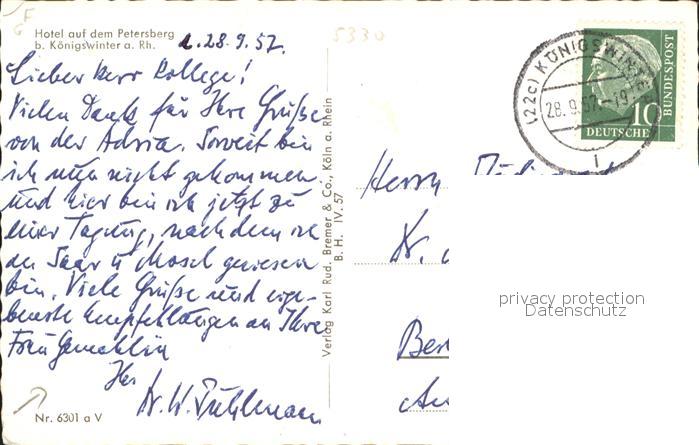 Hotel auf dem Petersberg
b. Königswinter a. Rh.
28.9.57.
5330
Lieber Herr Kollege!
Vielen Dank für Ihre Grüße
von der Adria. Soweit bin
ich nun nicht gekommen
und hier bin ich jetzt zu
einer Tagung, nachdem ich
an Saar u Mosel gewesen
bin. Viele Grüße und erge-
benste Empfehlungen an Ihre
Frau Gemahlin
Ihr
Dr. W.
Nr. 6301 a V
Verlag Karl Rud. Bremer & Co., Köln a. Rhein
B. H. IV. 57
(22c) KÖNIGSWINTER
28.9.57.-19
10
DEUTSCHE
BUNDESPOST
Herrn
Dr.
privacy protection
Datenschutz